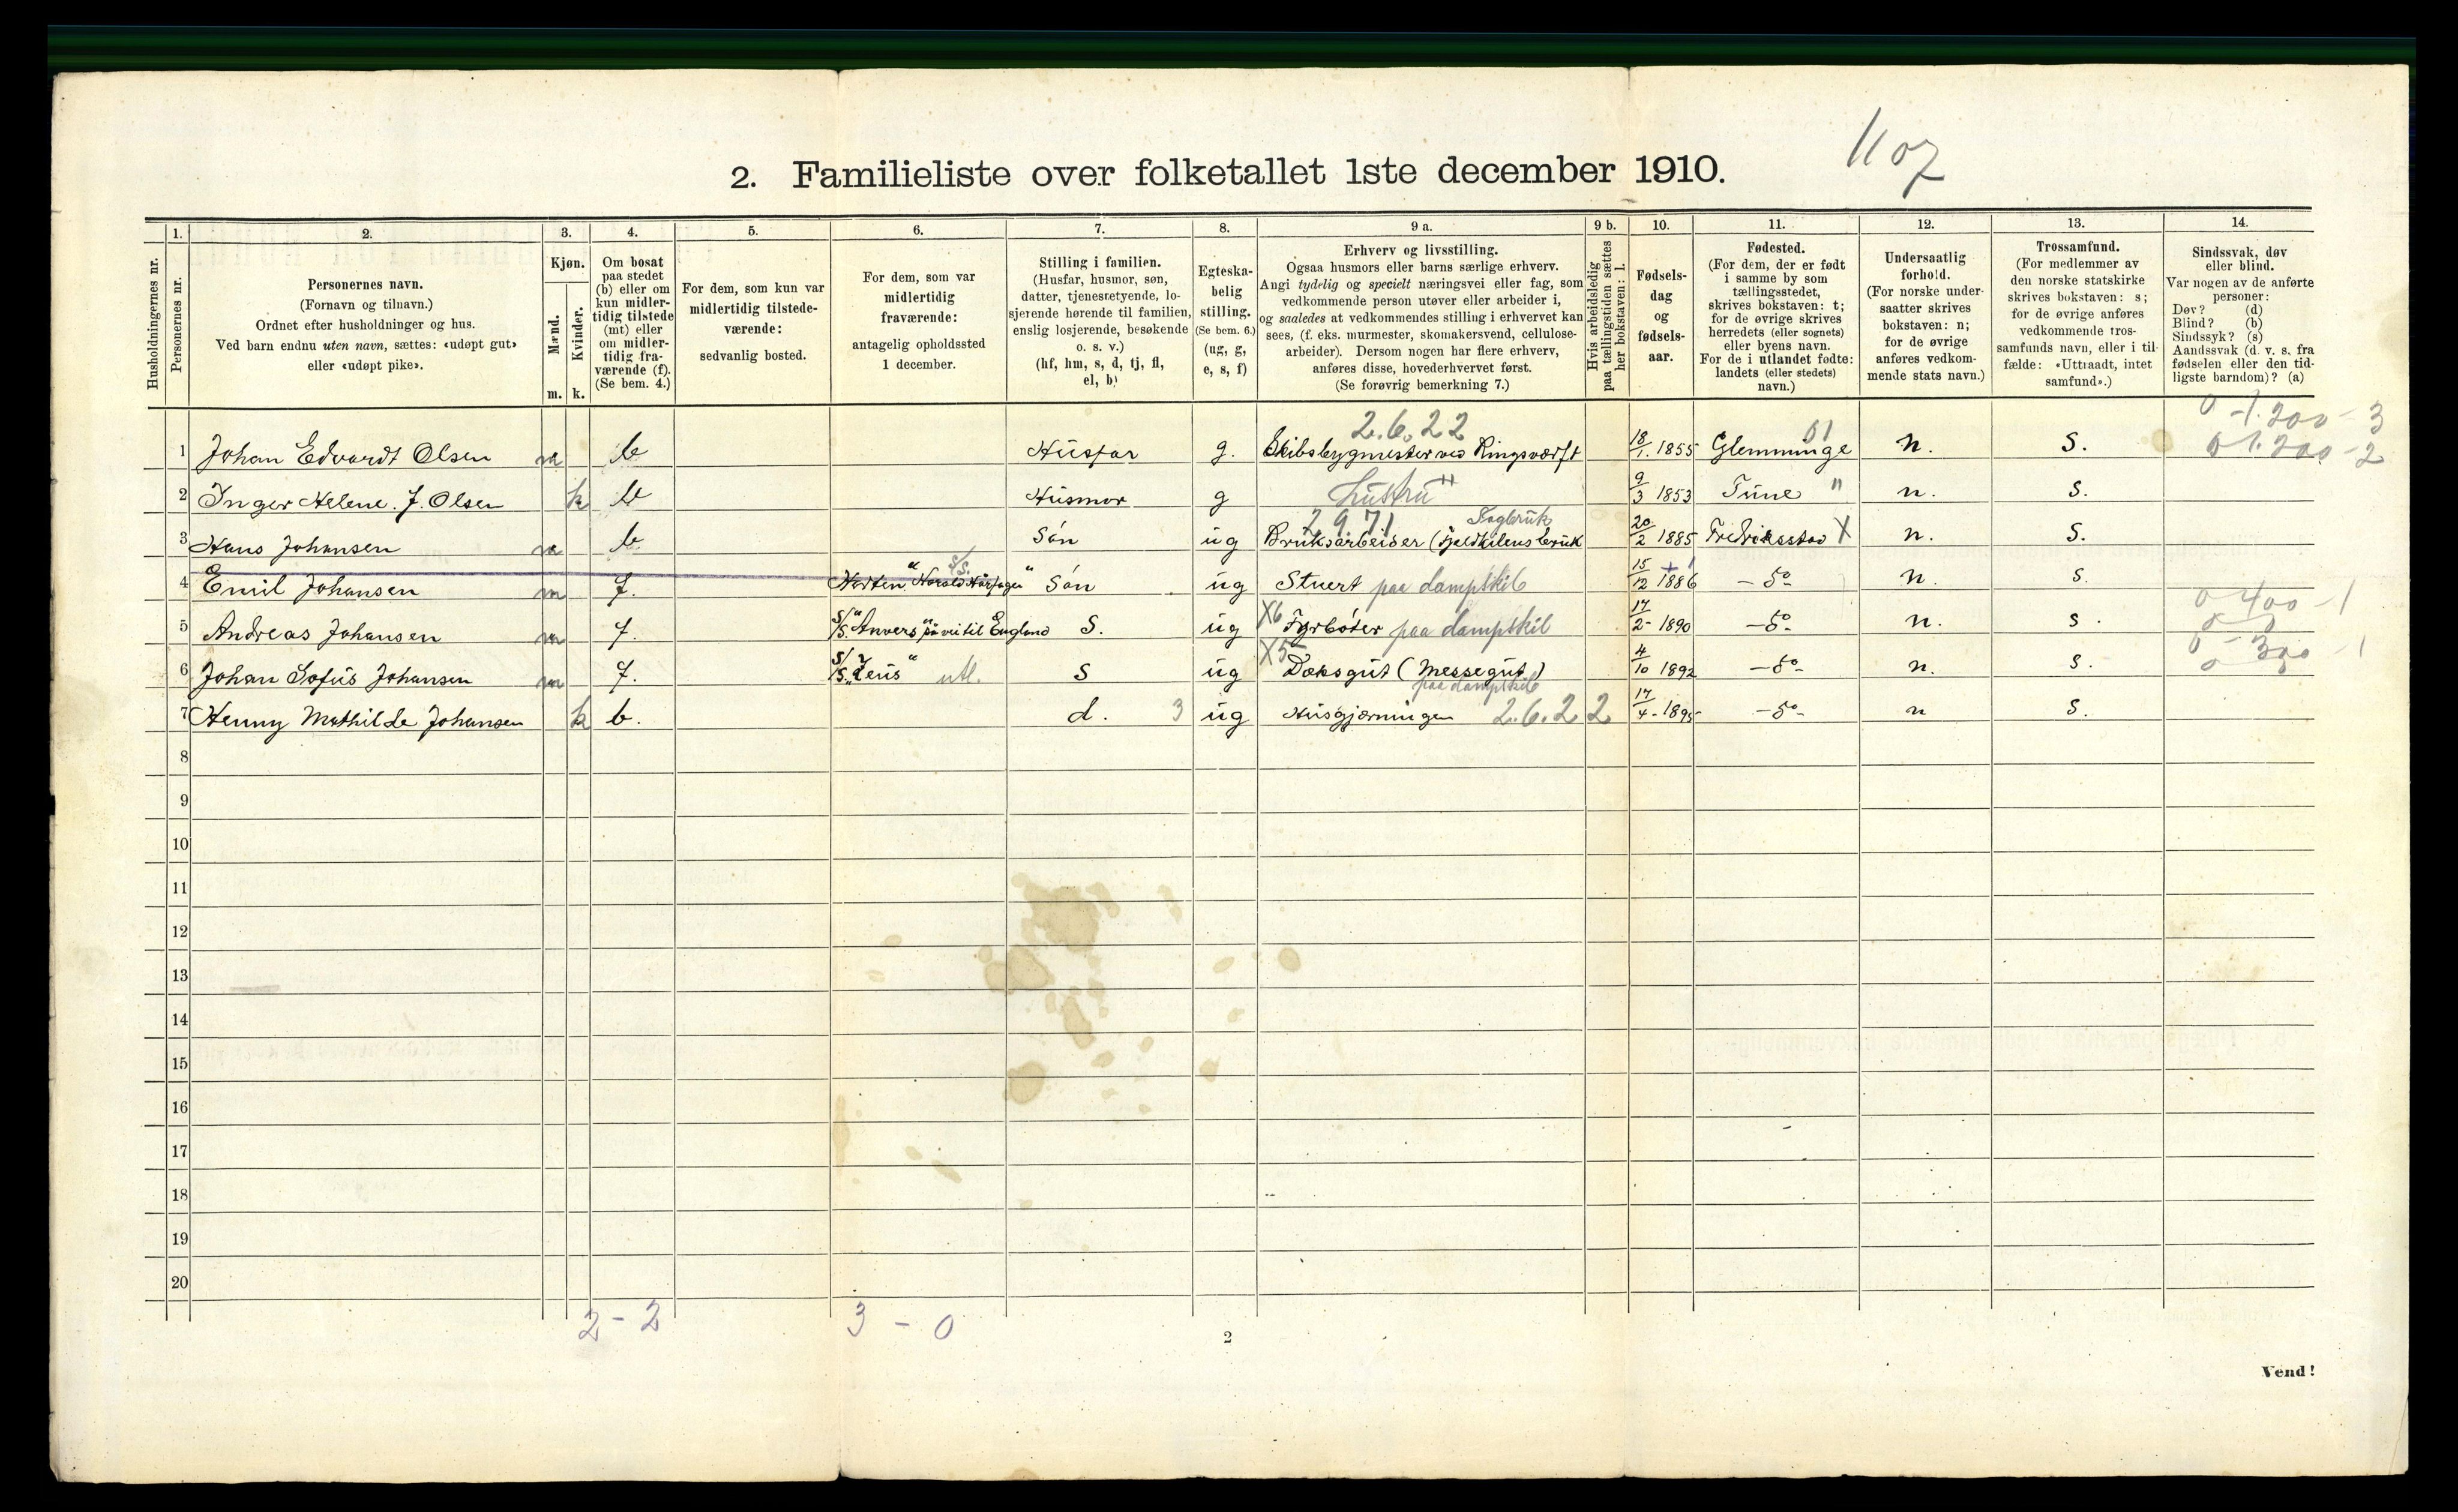 1107
2. Familieliste over folketallet 1ste december 1910.
Husholdningernes nr.
1. Personernes nr.
2.
Personernes navn.
(Fornavn og tilnavn.)
Ordnet efter husholdninger og hus.
Ved barn endnu uten navn, sættes: «udøpt gut»
eller «udøpt pike».
3.
Kjøn.
Mænd. Kvinder.
m. k.
4.
Om bosat
paa stedet
(b) eller om
kun midler-
tidig tilstede
(mt) eller
om midler-
tidig fra-
værende (f).
(Se bem. 4.)
5.
For dem, som kun var
midlertidig tilstede-
værende:
sedvanlig bosted.
6.
For dem, som var
midlertidig
fraværende:
antagelig opholdssted
1 december.
7.
Stilling i familien.
(Husfar, husmor, søn,
datter, tjenestetyende, lo-
sjerende hørende til familien,
enslig losjerende, besøkende
o. s. v.)
(hf, hm, s, d, tj, fl,
el, b)
8.
Egteska-
belig
stilling.
(Se bem. 6.)
(ug, g,
e, s, f)
9 a.
Erhverv og livsstilling.
Ogsaa husmors eller barns særlige erhverv.
Angi tydelig og specielt næringsvei eller fag, som
vedkommende person utøver eller arbeider i,
og saaledes at vedkommendes stilling i erhvervet kan
sees, (f. eks. murmester, skomakersvend, cellulose-
arbeider). Dersom nogen har flere erhverv,
anføres disse, hovederhvervet først.
(Se forøvrig bemerkning 7.)
9 b.
Hvis arbeidsledig
paa tællingstiden sættes
her bokstaven: l.
10.
Fødsels-
dag
og
fødsels-
aar.
11.
Fødested.
(For dem, der er født
i samme by som
tællingsstedet,
skrives bokstaven: t;
for de øvrige skrives
herredets (eller sognets)
eller byens navn.
For de i utlandet fødte:
landets (eller stedets)
navn.)
12.
Undersaatlig
forhold.
(For norske under-
saatter skrives
bokstaven: n;
for de øvrige
anføres vedkom-
mende stats navn.)
13.
Trossamfund.
(For medlemmer av
den norske statskirke
skrives bokstaven: s;
for de øvrige anføres
vedkommende tros-
samfunds navn, eller i til-
fælde: «Uttraadt, intet
samfund».)
14.
Sindssvak, døv
eller blind.
Var nogen av de anførte
personer:
Døv? (d)
Blind? (b)
Sindssyk? (s)
Aandssvak (d. v. s. fra
fødselen eller den tid-
ligste barndom)? (a)
2.6.22 01 0-1.200-3
1 Johan Edvardt Olsen m b Husfar g. Skibsbygmester ved Ringsværft 18/1. 1855 Glemminge n. S. 0 1.200-2
2 Inger Helene. J. Olsen k b Husmor g hustru 9/3 1853 Tune " n. S.
2.9.71 Sagbruk
3 Hans Johansen m b Søn ug Bruksarbeider (Kjældkilens bruk 20/2 1885 Fredriksstad X n. S.
S/S.
4 Emil Johansen m f. Horten "Harald Hårfager" Søn ug Stuert paa dampskib 15/12 1886 - do - n. S.
0 400-1
5 Andreas Johansen m f. S/S "Anvers" på vei til England S. ug X6 Fyrbøter paa dampskib 17/2 - 1890 - do - n. S.
0 300-1
6 Johan Sofus Johansen m f. S/S "Zeus" utl. S ug X5 Dæksgut (Messegut) 4/10 1892 - do - n. S.
paa dampskib
7 Henny Mathilde Johansen k b. d. 3 ug Husgjerningen 2.6.22 17/4 - 1895 - do - n S.
8
9
10
11
12
13
14
15
16
17
18
19
20
2 - 2 3 - 0
2
Vend!